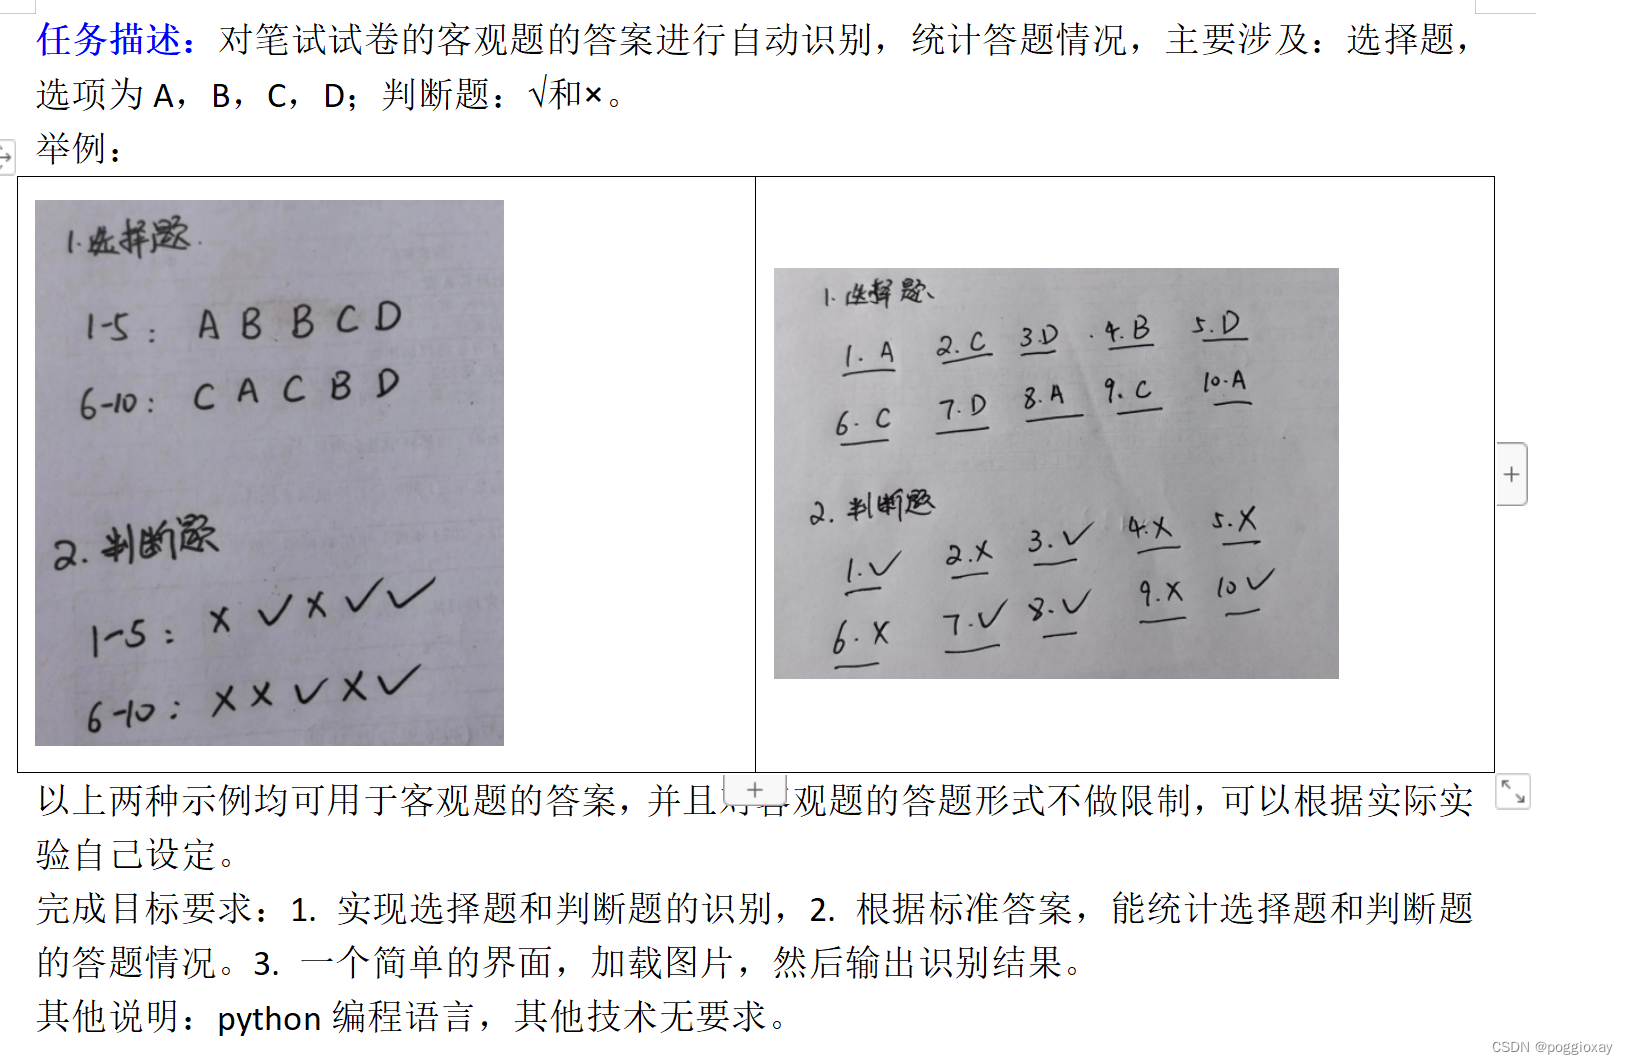 任务描述：对笔试试卷的客观题的答案进行自动识别，统计答题情况，主要涉及：选择题，
选项为 A，B，C，D；判断题：√和×。
举例：
1.选择题.
1-5： A B B C D
6-10： C A C B D
2.判断题
1-5： × √ × √ √
6-10： × × √ × √
1.选择题、
1. A 2. C 3.D 4.B 5.D
6. C 7.D 8.A 9.C 10.A
2.判断题
1.√ 2.× 3.√ 4.× 5.×
6.× 7.√ 8.√ 9.× 10√
以上两种示例均可用于客观题的答案，并且对客观题的答题形式不做限制，可以根据实际实
验自己设定。
完成目标要求：1. 实现选择题和判断题的识别，2. 根据标准答案，能统计选择题和判断题
的答题情况。3. 一个简单的界面，加载图片，然后输出识别结果。
其他说明：python 编程语言，其他技术无要求。
CSDN @poggioxay